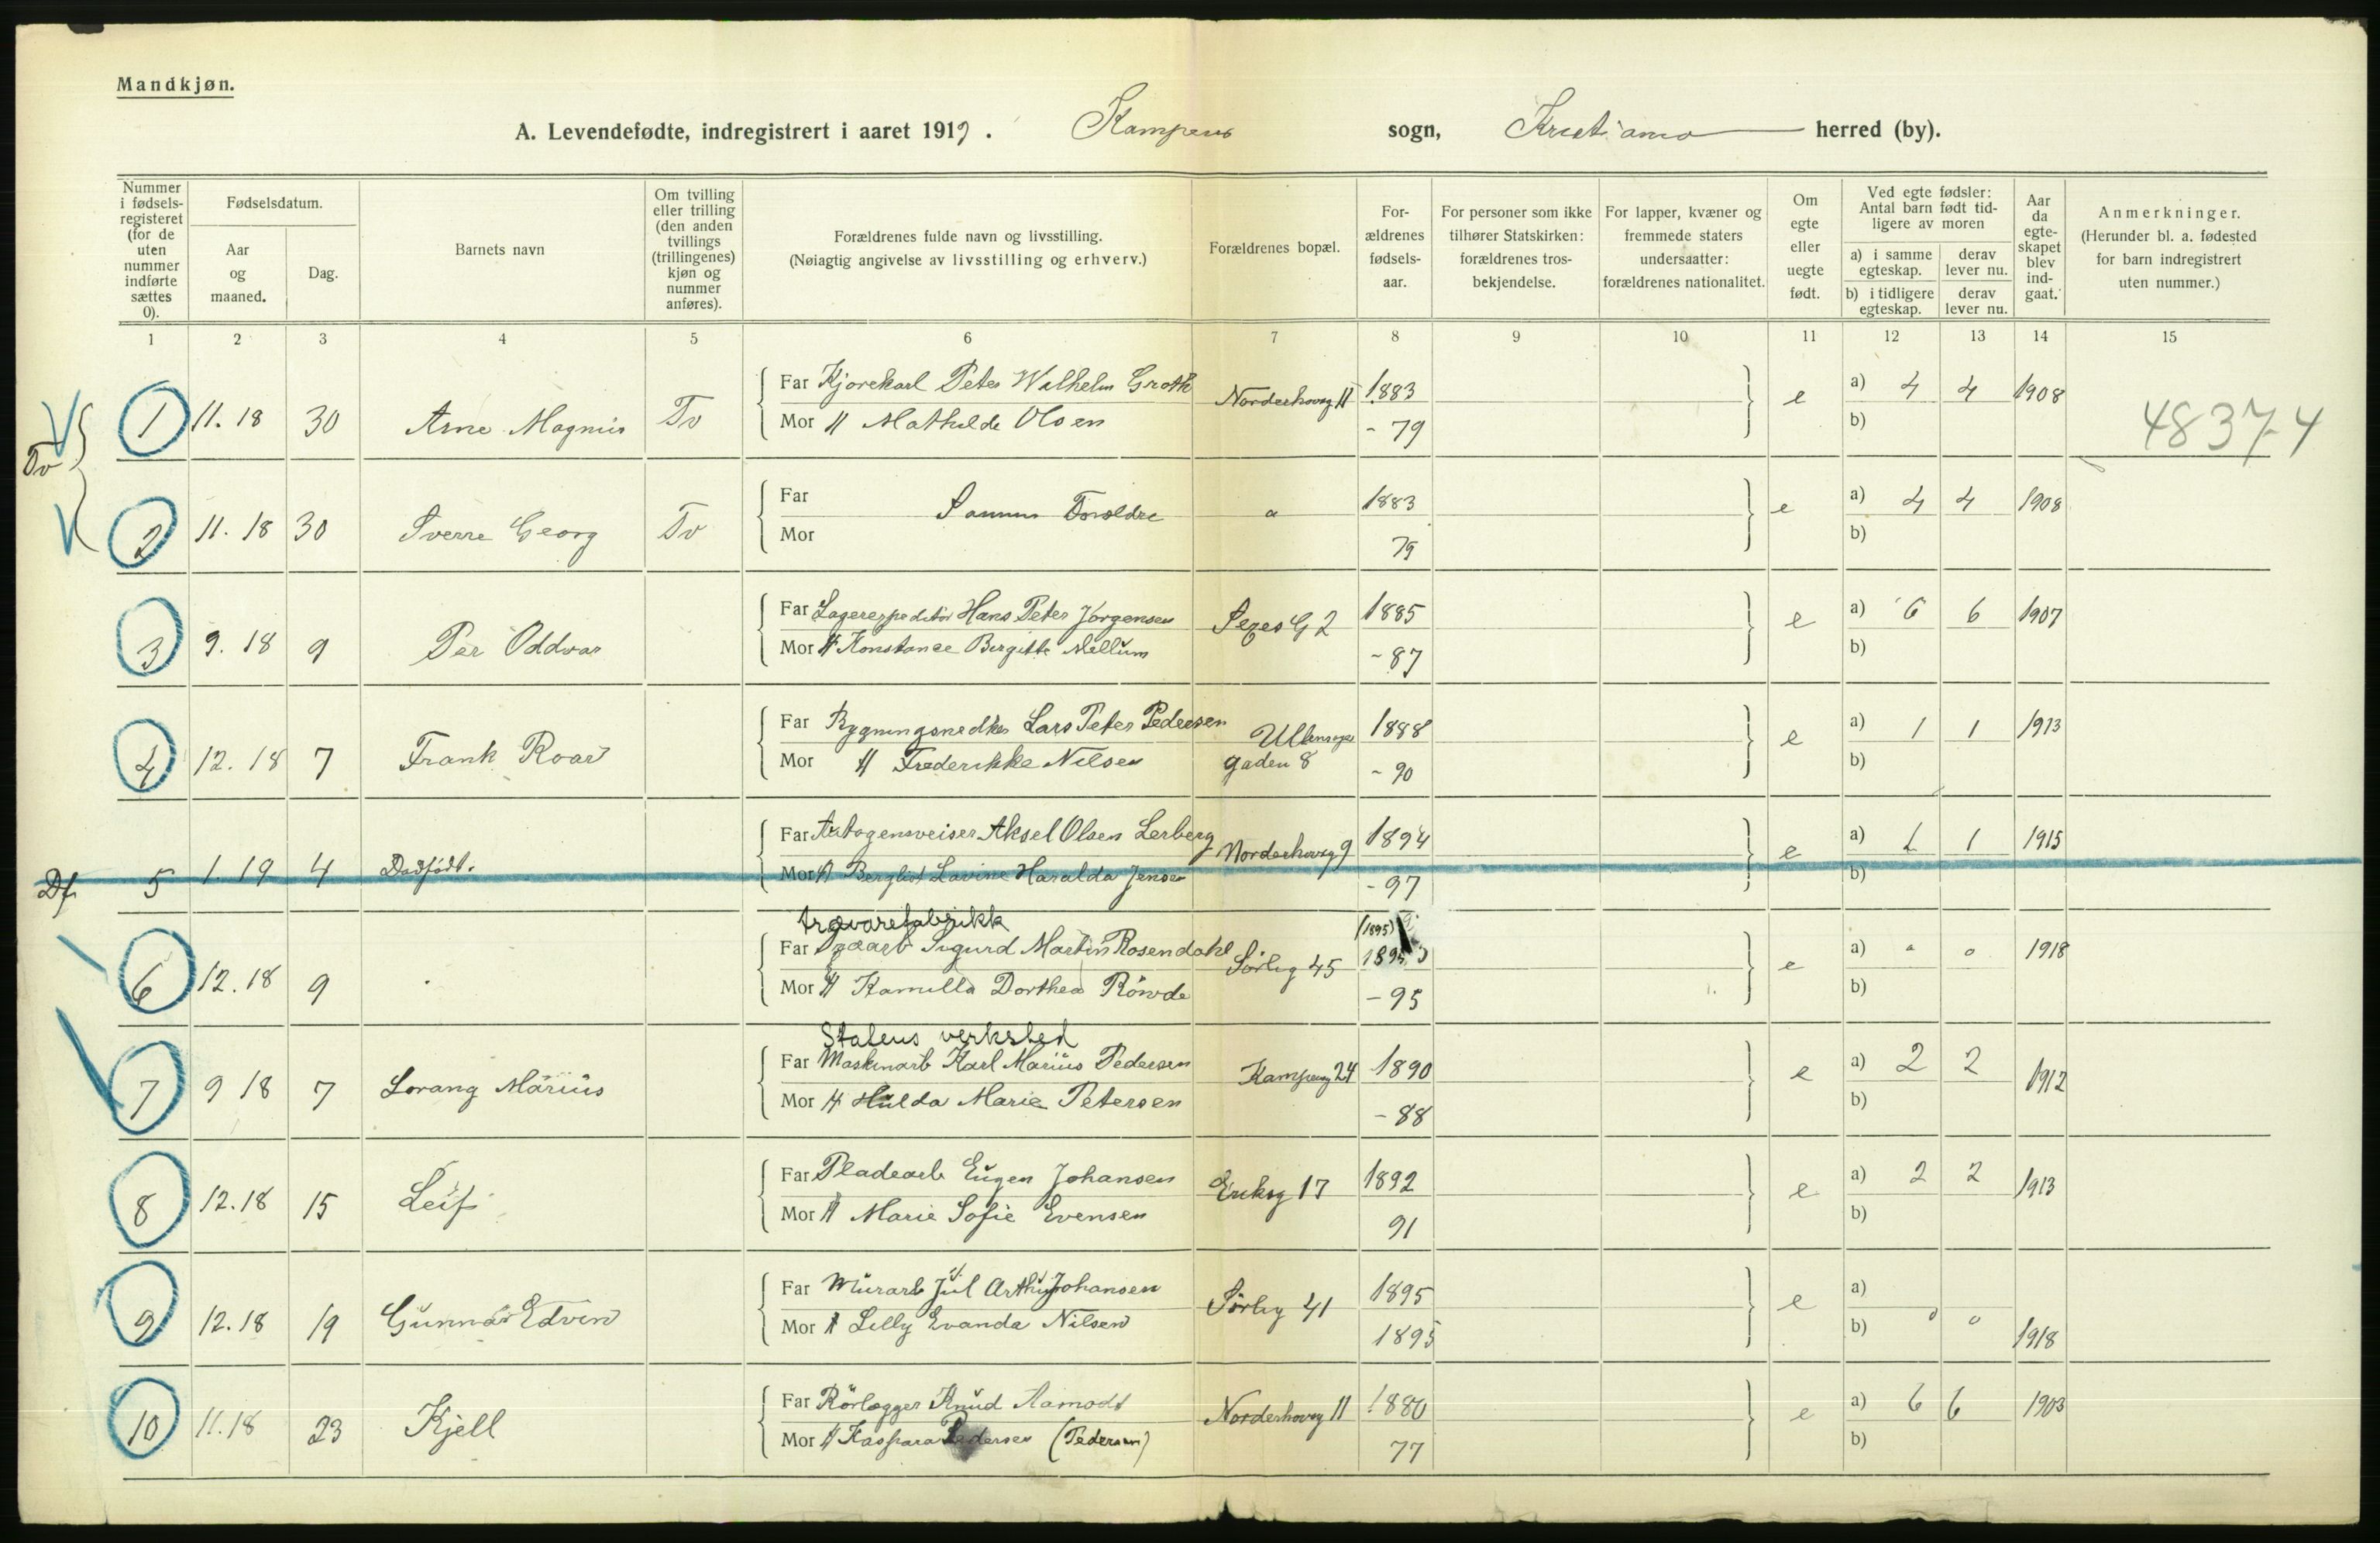 Mandkjøn.
A. Levendefødte, indregistrert i aaret 1919. Kampens sogn, Kristiania herred (by).
Nummer i fødsels-registeret (for de uten nummer indførte sættes 0).
Fødselsdatum.
Aar og maaned.
Dag.
Barnets navn
Om tvilling eller trilling (den anden tvillings (trillingenes) kjøn og nummer anføres).
Forældrenes fulde navn og livsstilling.
(Nøiagtig angivelse av livsstilling og erhverv.)
Forældrenes bopæl.
For-ældrenes fødsels-aar.
For personer som ikke tilhører Statskirken: forældrenes tros-bekjendelse.
For lapper, kvæner og fremmede staters undersaatter: forældrenes nationalitet.
Om egte eller uegte født.
Ved egte fødsler: Antal barn født tid-ligere av moren
a) i samme egteskap.
derav lever nu.
b) i tidligere egteskap.
derav lever nu.
Aar da egte-skapet blev ind-gaat.
Anmerkninger.
(Herunder bl. a. fødested for barn indregistrert uten nummer.)
1 2 3 4 5 6 7 8 9 10 11 12 13 14 15
Tv
1 11.18 30 Arne Magnus Tv Far Kjørekarl Peter Wilhelm Groth Norderhovsg 11 1883 e a) 4 4 1908
Mor H Mathilde Olsen - 79 b)
48374
2 11.18 30 Sverre Georg Tv Far Samme Forældre " 1883 e a) 4 4 1908
Mor 79 b)
3 9.18 9 Per Oddvar Far Lagerexpeditør Hans Peter Jørgensen Sexes G 2 1885 e a) 6 6 1907
Mor H Konstance Birgitte Mellum - 87 b)
4 12.18 7 Frank Roar Far Bygningsnedker Lars Peter Pedersen Ullensager 1888 e a) 1 1 1913
Mor H Frederikke Nilsen gaden 8 - 90 b)
Df. 5 1.19 4 Dødfødt. Far Autogensveiser Aksel Olsen Lerberg Norderhovsg 9 1894 e a) 1 1 1915
Mor H Bergliot Lovine Haralda Jensen - 97 b)
trævarefabrikk (1895)
6 12.18 9 Far Sagarb Sigurd Martin Rosendahl Sörlig 45 1895 e a) " o 1918
Mor H Kamilla Dorthea Rönde - 95 b)
Statens verksted
7 9 18 7 Lorang Marius Far Maskinarb Karl Marius Pedersen Kampeng 24 1890 e a) 2 2 1912
Mor H Hulda Marie Petersen - 88 b)
8 12.18 15 Leif Far Pladearb Eugen Johansen Eriksg 17 1892 e a) 2 2 1913
Mor H Marie Sofie Evensen 91 b)
9 12.18 19 Gunnar Edvin Far Murarb Jul Arthur Johansen Sörlig 41 1895 e a)
Mor H Lilly Evanda Nilsen 1895 b) o o 1918
10 11.18 23 Kjell Far Rörlægger Knud Aamodt Norderhovsg 11 1880 e a) 6 6 1903
Mor H Kaspara Pedersen (Pedersen) 77 b)